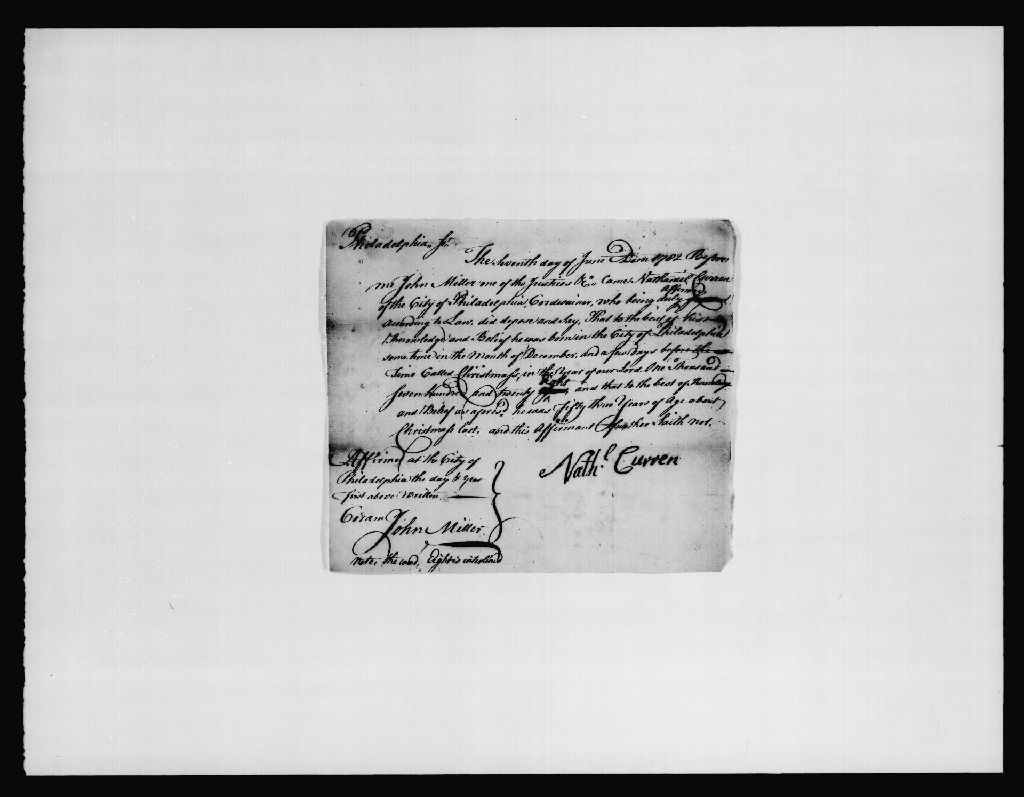 Philadelphia, Ss.
The Seventh day of June Dom 1782 Before
me John Miller one of the Justices &c. Came Nathaniel Curren
affirmed
of the City of Philadelphia Cordwainer, who being duly
According to Law, did depose and say, That to the best of his
Knowledge and Belief he was born in the City of Philadelphia
some time in the Month of December, and a few days before the
Time Called Christmass, in the Year of our Lord One Thousand
Eight
Seven Hundred and twenty and that to the best of Knowledge
and Belief as afores.d he was fifty three Years of Age about
Christmass last, and this Affirmant further Saith not.
Affirmed at the City of
Philadelphia the day & Year
first above written
Nath.l Curren
Coram John Miller
Note, the word, Eight is interlined